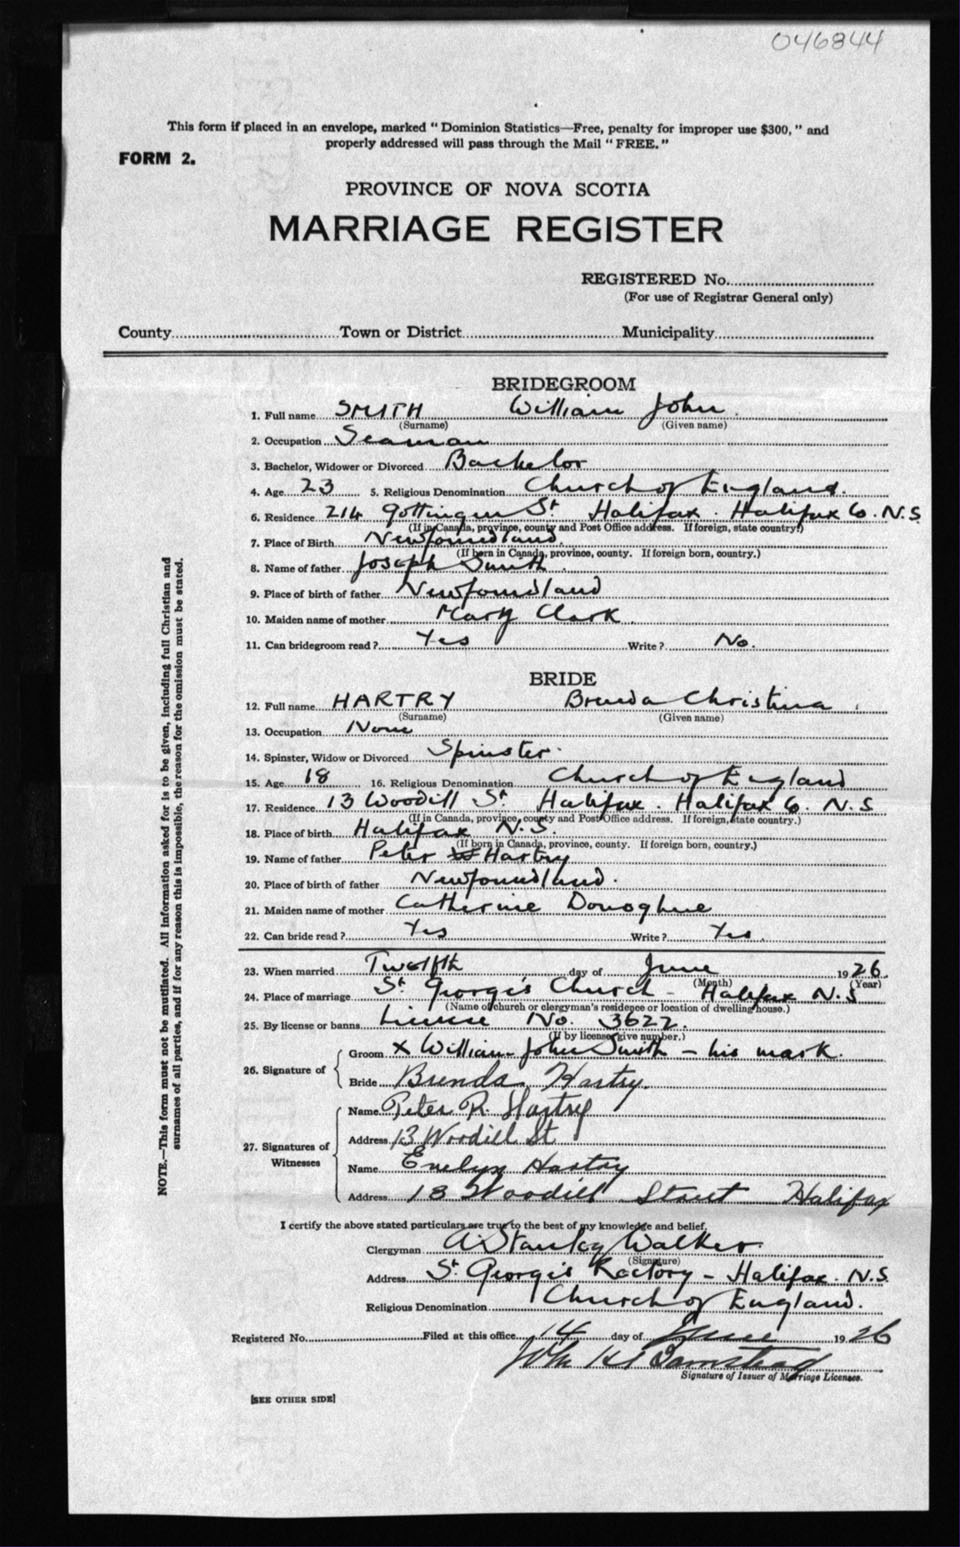 046844
This form if placed in an envelope, marked "Dominion Statistics—Free, penalty for improper use $300," and
properly addressed will pass through the Mail "FREE."
FORM 2.
PROVINCE OF NOVA SCOTIA
MARRIAGE REGISTER
REGISTERED No.
(For use of Registrar General only)
County Town or District Municipality
BRIDEGROOM
1. Full name SMITH William John
(Surname) (Given name)
2. Occupation Seaman
3. Bachelor, Widower or Divorced Bachelor
4. Age 23 5. Religious Denomination Church of England.
6. Residence 214 Gottingen St Halifax. Halifax Co. N.S.
(If in Canada, province, county and Post Office address. If foreign, state country.)
7. Place of Birth Newfoundland.
(If born in Canada, province, county. If foreign born, country.)
8. Name of father Joseph Smith
9. Place of birth of father Newfoundland
10. Maiden name of mother Mary Clark
11. Can bridegroom read? Yes Write? No.
BRIDE
12. Full name HARTRY Brenda Christina
(Surname) (Given name)
13. Occupation None
14. Spinster, Widow or Divorced Spinster
15. Age 18 16. Religious Denomination Church of England
17. Residence 13 Woodill St Halifax. Halifax Co. N.S
(If in Canada, province, county and Post Office address. If foreign, state country.)
18. Place of birth Halifax N.S.
(If born in Canada, province, county. If foreign born, country.)
19. Name of father Peter Hartry
20. Place of birth of father Newfoundland.
21. Maiden name of mother Catherine Donoghue
22. Can bride read? Yes Write? Yes.
23. When married Twelfth day of June 1926.
(Month) (Year)
24. Place of marriage St George's Church - Halifax N.S
(Name of church or clergyman's residence or location of dwelling house.)
25. By license or banns License No. 3622.
(If by license give number.)
26. Signature of
Groom X William John Smith - his mark.
Bride Brenda Hartry.
27. Signatures of
Witnesses
Name Peter R. Hartry
Address 13 Woodill St
Name Evelyn Hartry
Address 13 Woodill Street Halifax
I certify the above stated particulars are true to the best of my knowledge and belief.
Clergyman A. Stanley Walker
(Signature)
Address St George's Rectory - Halifax. N.S.
Religious Denomination Church of England.
Registered No. Filed at this office 14 day of June 1926
Signature of Issuer of Marriage Licenses.
[SEE OTHER SIDE]
NOTE.—This form must not be mutilated. All information asked for is to be given, including full Christian and
surnames of all parties, and if for any reason this is impossible, the reason for the omission must be stated.